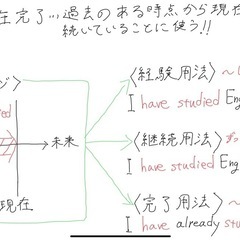 在完了…過去のある時点から現在
続いていることに使う!!
〈経験用法〉~
I have studied Eng
未来
〈継続用法〉ずっ
I have studied Eng
現在
〈完了用法〉~し
I have already stu